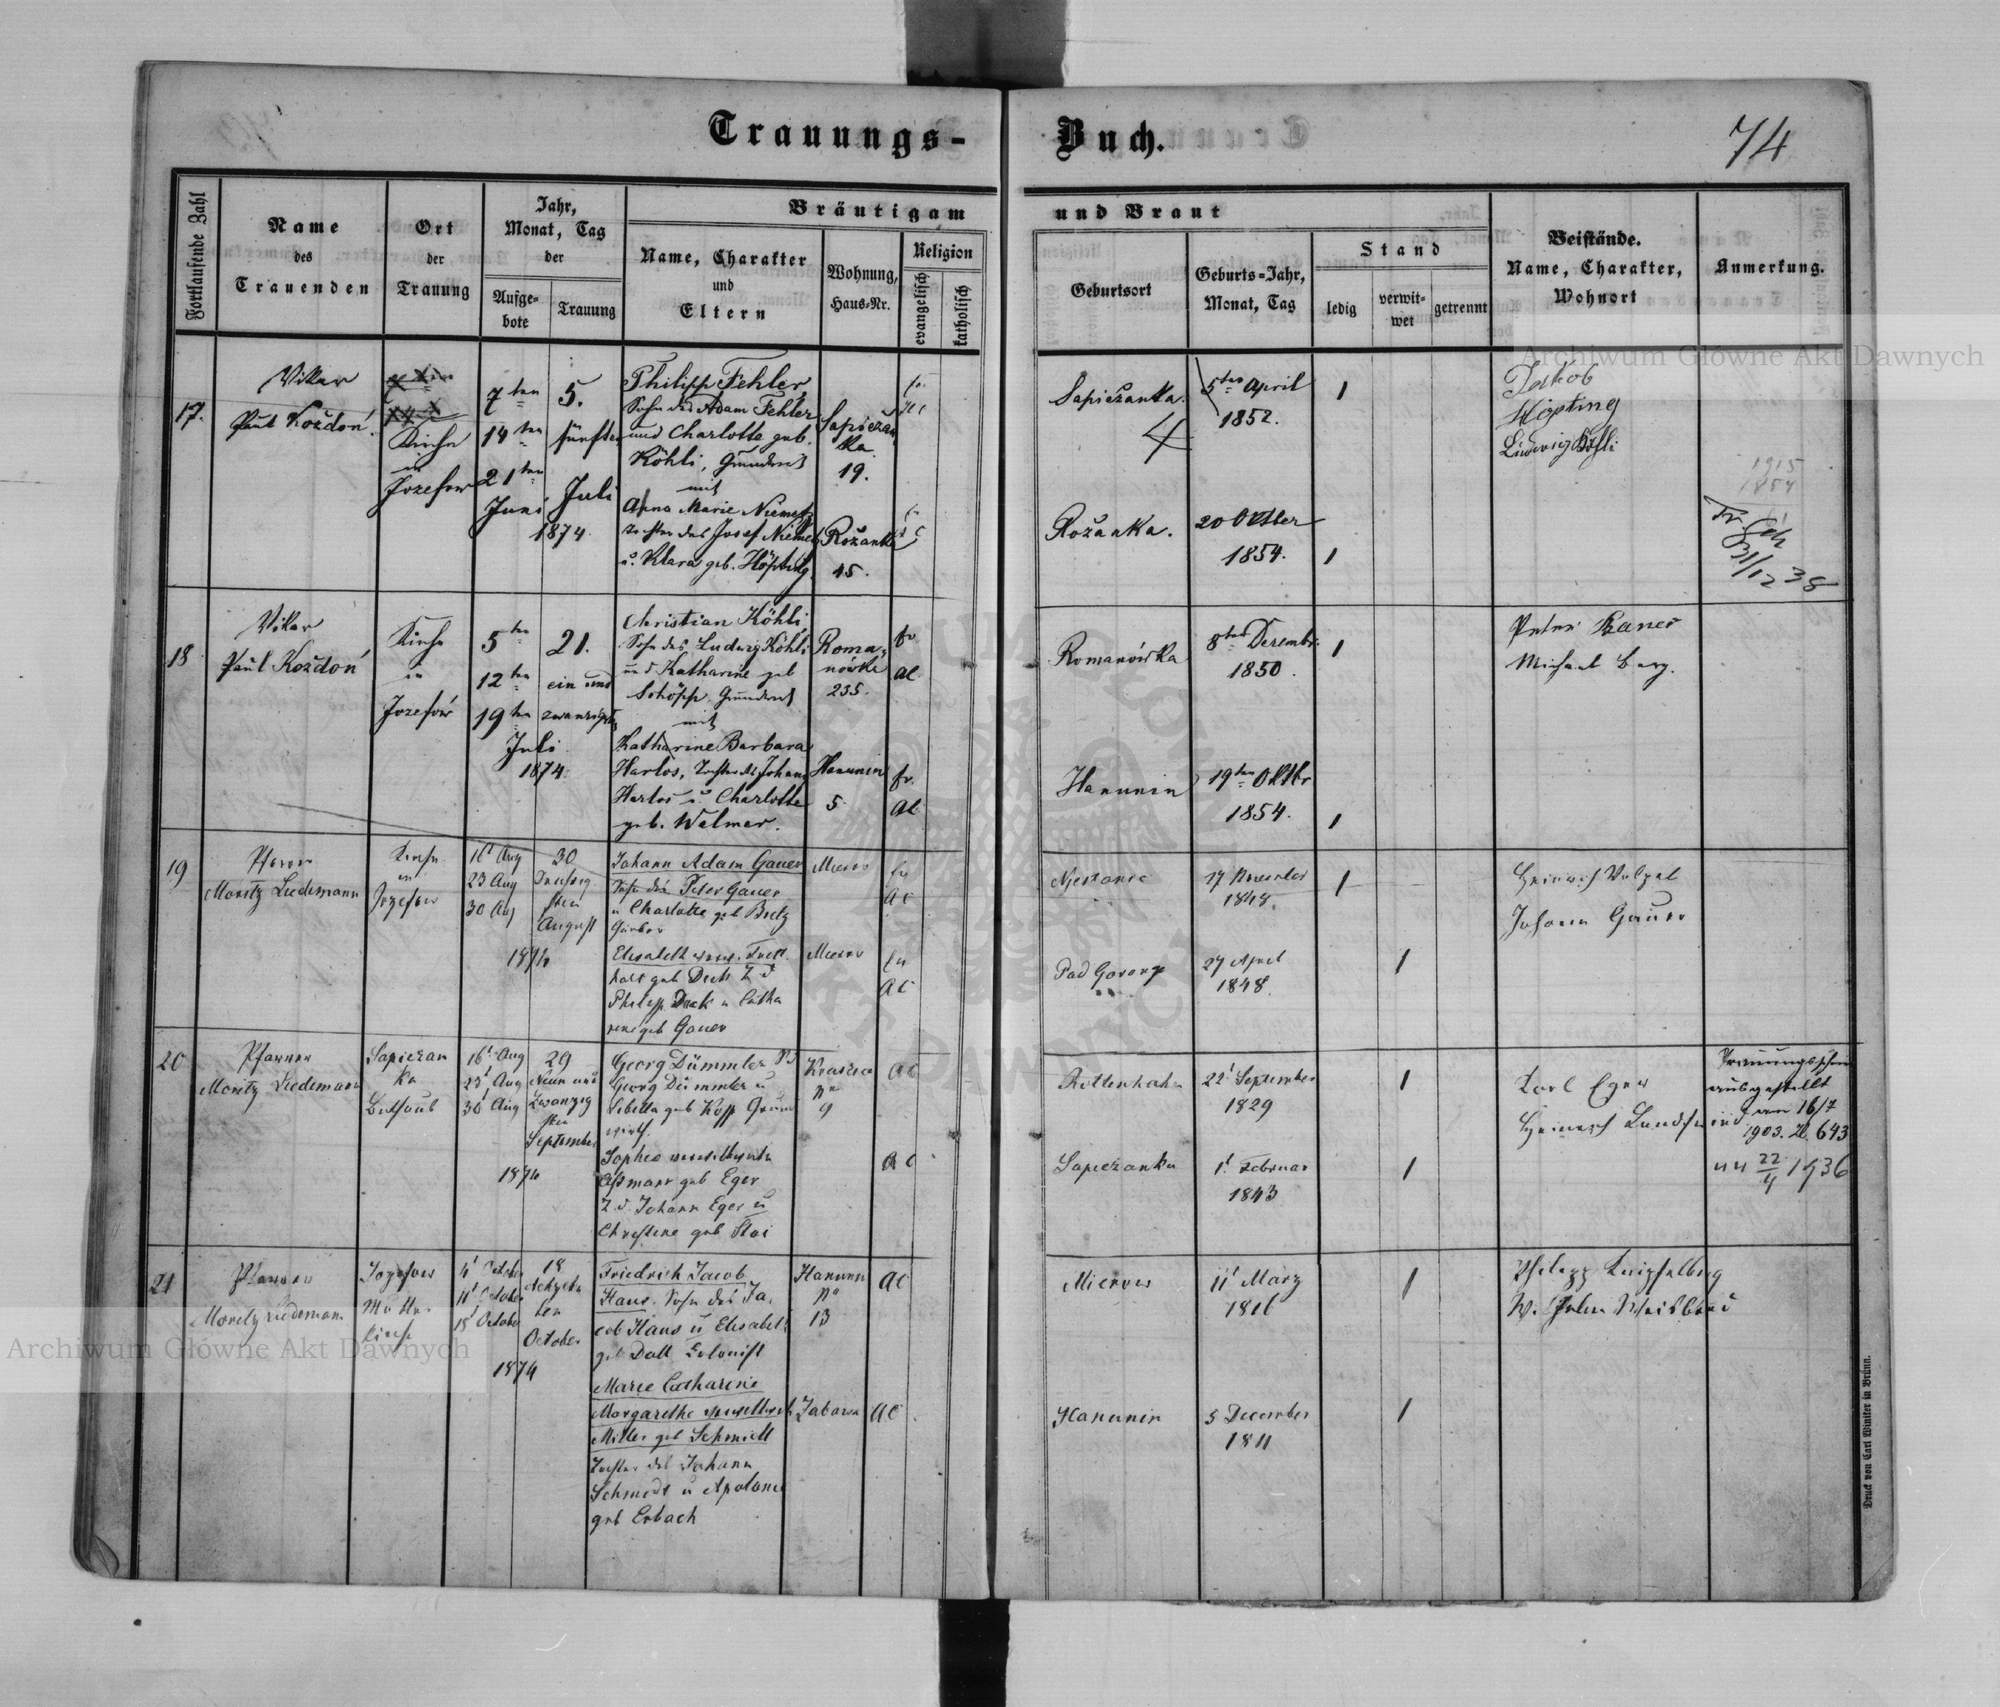 Trauungs-Buch.
74
Fortlaufende Zahl
Name des Trauenden
Ort der Trauung
Jahr, Monat, Tag der
Aufgebote
Trauung
Bräutigam und Braut
Name, Charakter und Eltern
Wohnung, Haus-Nr.
Religion
evangelisch
katholisch
Geburtsort
Geburts-Jahr, Monat, Tag
Stand
ledig
verwitwet
getrennt
Beistände.
Name, Charakter, Wohnort
Anmerkung.
17.
Vikar
Paul Koždoń.
Kirche
in
Jozefow
7ten
14ten
21ten
Juni
5.
fünften
Juli
1874.
Philipp Fehler,
Sohn des Adam Fehler
und Charlotte geb.
Köhli, Grundwirt
mit
Anna Marie Niemetz
Tochter des Josef Niemetz
u. Klara geb. Höpting.
Sapiežan
ka
19.
Rožanka
15.
Sapiežanka.
5ten April
1852.
1
Rožanka.
20 Oktber
1854.
1
Jakob
Höpting
Ludwig Köhli
1915
1854
31/12 38
18
Vikar
Paul Koždoń
Kirche
in
Jozefów
5ten
12ten
19ten
Juli
1874.
21.
ein und
zwanzigsten
Christian Köhli,
Sohn des Ludwig Köhli
und Katharine geb
Schöpp, Grundwirt
mit
Katharine Barbara
Harlos, Tochter des Johann
Harlos u. Charlotte
geb. Welmer.
Roma-
nówka
235.
Hanunin
5.
ev.
AC
ev.
AC
Romanówka
8ten Dezembr.
1850.
1
Hanunin
19ten Oktbr
1854.
1
Peter
Michael Berg.
19
Pfarrer
Moritz Liedemann
Kirche
in
Jozefow
16t Aug
23 Aug
30 Aug
1874
30
Dreissig
sten
August
Johann Adam Gauer
Sohn des Peter Gauer
u Charlotte geb Bietz
Elisabeth verw.
Philipp Deck u Catha
rine geb Gauer
Mierow
Mierow
ev
AC
ev
AC
17 November
1848.
1
27 April
1848.
1
Heinrich
Johann Gauer
20
Pfarrer
Moritz Liedemann
Sapiezan
ka
Bethaus
16t Aug
23t Aug
30t Aug
1874
29
Neun und
Zwanzig
sten
September
Georg Dümmler Sd
Georg Dümmler u
Sibilla geb Kopp Grund
wirth.
Sophie verwittwete
Aßmann geb Eger
T. d. Johann Eger u
Christine geb Stoi
No
9
AC
AC
Rottenhahn
22t September
1829
1
Sapiezanka
1t Februar
1843
1
Karl Eger
Heinrich
Trauungsschein
ausgestellt
am 16/7
1903. Zl. 643
22/4 1936
21
Pfarrer
Moritz Liedemann
Jozefow
Mutter
Kirche
4t October
11t October
18t October
1874
18
Achtzehn
ten
October
Friedrich Jacob
Haus. Sohn des Ja-
cob Haus u Elisabeth
geb Doll Kolonist
Marie Catharine
Margarethe verwittwete
Miller geb Schmidt
Tochter des Johann
Schmidt u Apolonia
geb Erbach
Hanunin
No
13
AC
AC
Mierow
11t März
1816
1
Hanunin
5 December
1811
1
Philipp
Archiwum Główne Akt Dawnych
Archiwum Główne Akt Dawnych
Druck von Carl Winiker in Brünn.